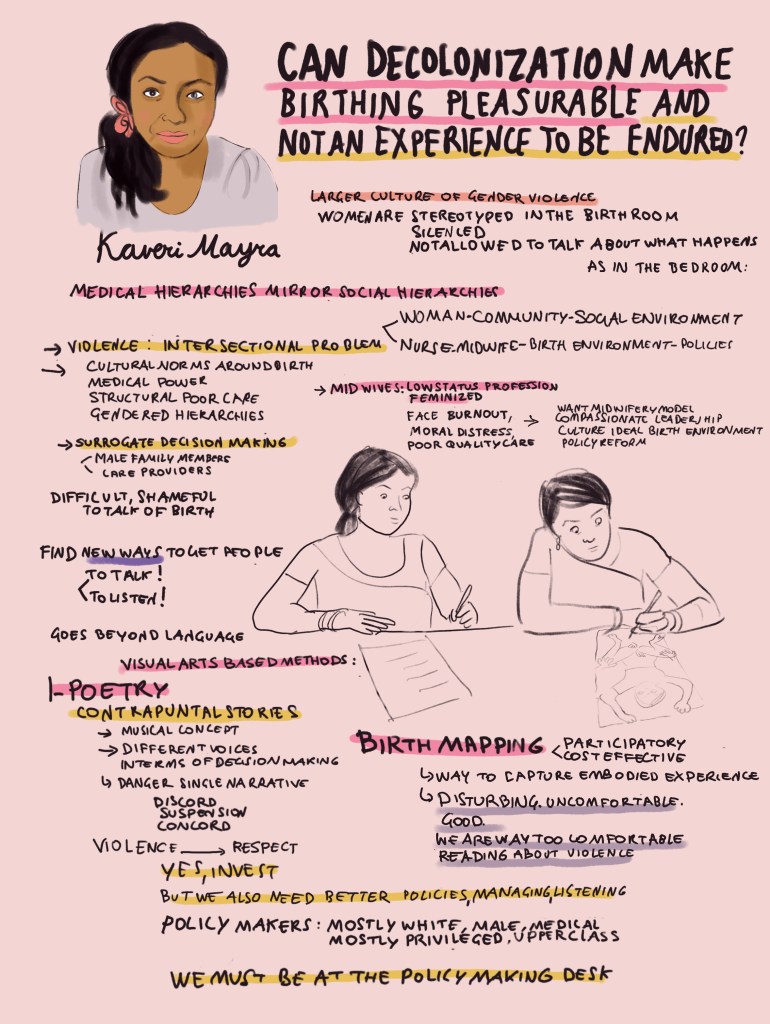 CAN DECOLONIZATION MAKE
BIRTHING PLEASURABLE AND
NOT AN EXPERIENCE TO BE ENDURED?
Kaveri Mayra
LARGER CULTURE OF GENDER VIOLENCE
WOMEN ARE STEREOTYPED IN THE BIRTH ROOM
SILENCED
NOT ALLOWED TO TALK ABOUT WHAT HAPPENS
AS IN THE BEDROOM:
MEDICAL HIERARCHIES MIRROR SOCIAL HIERARCHIES
→ VIOLENCE: INTERSECTIONAL PROBLEM
WOMAN-COMMUNITY-SOCIAL ENVIRONMENT
NURSE-MIDWIFE-BIRTH ENVIRONMENT-POLICIES
→ CULTURAL NORMS AROUND BIRTH
MEDICAL POWER
STRUCTURAL POOR CARE
GENDERED HIERARCHIES
→ MIDWIVES: LOW STATUS PROFESSION
FEMINIZED
FACE BURNOUT,
MORAL DISTRESS,
POOR QUALITY CARE
→ WANT MIDWIFERY MODEL
COMPASSIONATE LEADERSHIP
CULTURE IDEAL BIRTH ENVIRONMENT
POLICY REFORM
→ SURROGATE DECISION MAKING
MALE FAMILY MEMBERS
CARE PROVIDERS
DIFFICULT, SHAMEFUL
TO TALK OF BIRTH
FIND NEW WAYS TO GET PEOPLE
TO TALK!
TO LISTEN!
GOES BEYOND LANGUAGE
VISUAL ARTS BASED METHODS:
I-POETRY
CONTRAPUNTAL STORIES
→ MUSICAL CONCEPT
→ DIFFERENT VOICES
IN TERMS OF DECISION MAKING
↳ DANGER SINGLE NARRATIVE
DISCORD
SUSPENSION
CONCORD
VIOLENCE → RESPECT
BIRTH MAPPING < PARTICIPATORY
COST EFFECTIVE
↳ WAY TO CAPTURE EMBODIED EXPERIENCE
↳ DISTURBING. UNCOMFORTABLE.
GOOD.
WE ARE WAY TOO COMFORTABLE
READING ABOUT VIOLENCE
YES, INVEST
BUT WE ALSO NEED BETTER POLICIES, MANAGING, LISTENING
POLICY MAKERS: MOSTLY WHITE, MALE, MEDICAL
MOSTLY PRIVILEGED, UPPERCLASS
WE MUST BE AT THE POLICY MAKING DESK